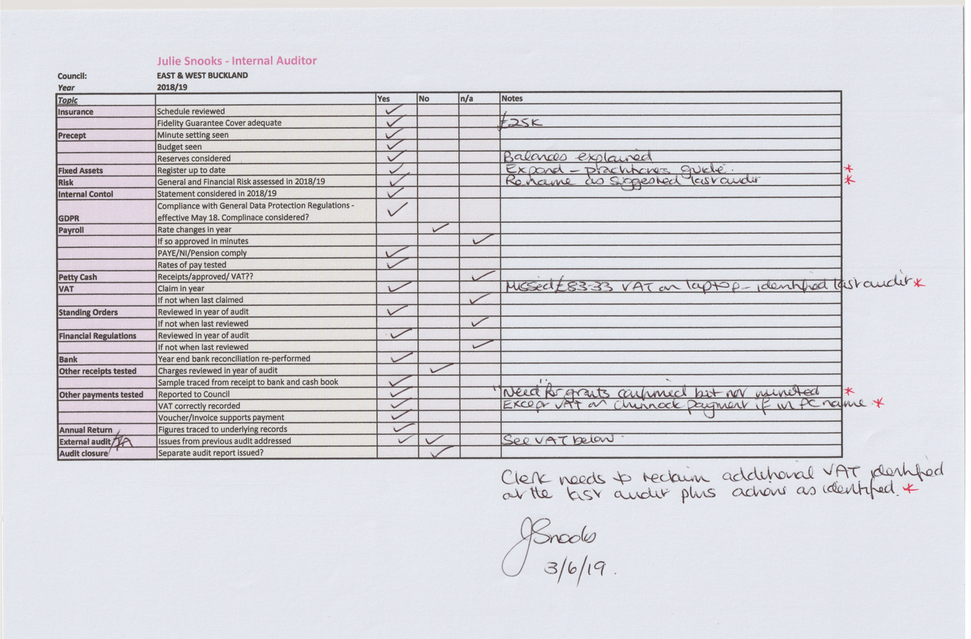 Julie Snooks - Internal Auditor
Council: EAST & WEST BUCKLAND
Year 2018/19
Topic Yes No n/a Notes
Insurance Schedule reviewed ✓
Fidelity Guarantee Cover adequate ✓ £25K
Precept Minute setting seen ✓
Budget seen ✓
Reserves considered ✓ Balances explained
Fixed Assets Register up to date ✓ Expand - practitioners guide. *
Risk General and Financial Risk assessed in 2018/19 ✓ Rename as suggested last audit *
Internal Contol Statement considered in 2018/19 ✓
Compliance with General Data Protection Regulations -
GDPR effective May 18. Complinace considered? ✓
Payroll Rate changes in year ✓
If so approved in minutes ✓
PAYE/NI/Pension comply ✓
Rates of pay tested ✓
Petty Cash Receipts/approved/ VAT?? ✓
VAT Claim in year ✓ Missed £83-33 VAT on laptop - identified last audit *
If not when last claimed ✓
Standing Orders Reviewed in year of audit ✓
If not when last reviewed ✓
Financial Regulations Reviewed in year of audit ✓
If not when last reviewed ✓
Bank Year end bank reconciliation re-performed ✓
Other receipts tested Charges reviewed in year of audit ✓
Sample traced from receipt to bank and cash book ✓
Other payments tested Reported to Council ✓ "Need" for grants confirmed but not minuted *
VAT correctly recorded ✓ Except VAT on payment if in PC name *
Voucher/Invoice supports payment ✓
Annual Return Figures traced to underlying records ✓
External audit/IA Issues from previous audit addressed ✓ ✓ See VAT below.
Audit closure Separate audit report issued? ✓
Clerk needs to reclaim additional VAT identified
at the last audit plus actions as identified. *
JSnooks
3/6/19.